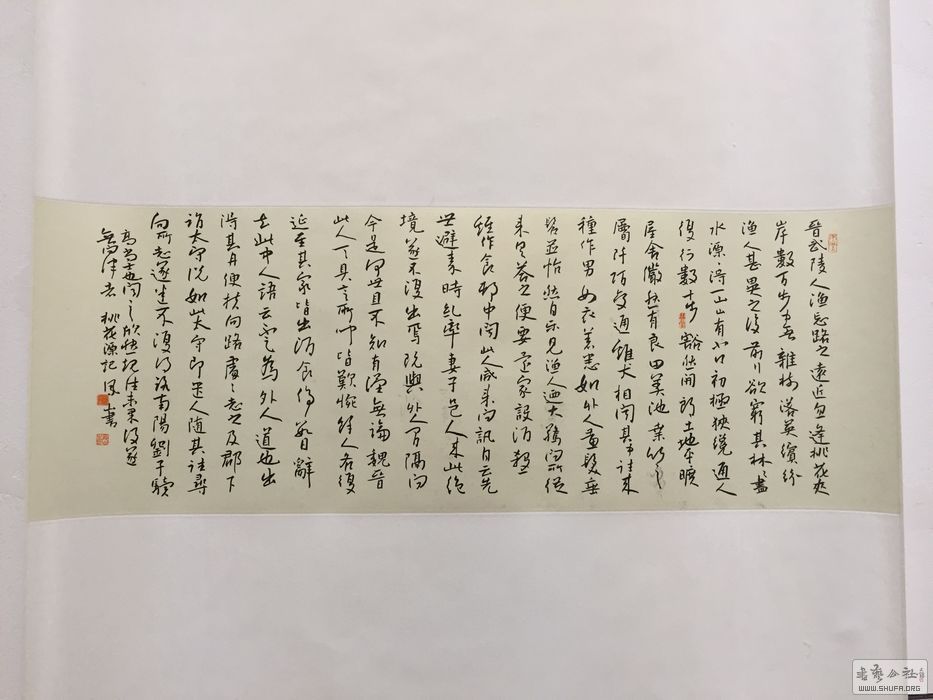 晋武陵人渔忘路之远近忽逢桃花夹
岸数百步无雜树落英缤纷
渔人甚異之復前行欲窮其林林盡
水源得一山山有小口初極狭纔通人
復行数十步豁然開朗土地平曠
屋舍儼然有良田美池桑竹之
屬阡陌交通雞犬相聞其中往来
種作男女衣着悉如外人黄髪垂
髫並怡然自乐見渔人廼大驚问所從
来具答之便要還家設酒殺
雞作食邨中聞此人咸来问訊自云先
世避秦時乱率妻子邑人来此绝
境遂不復出焉遂與外人间隔问
今是何世且不知有漢無論魏晋
此人一一具言所聞皆歎惋餘人各復
延至其家皆出酒食停数日辭
去此中人語云不足為外人道也出
得其舟便扶向路處處志之及郡下
詣太守说如此太守即遣人随其往尋
向所志遂迷不復得路南陽劉子驥
高尚士也聞之欣然規往未果後遂
無问津者 桃花源记 書
書藝公社
WWW.SHUFA.ORG